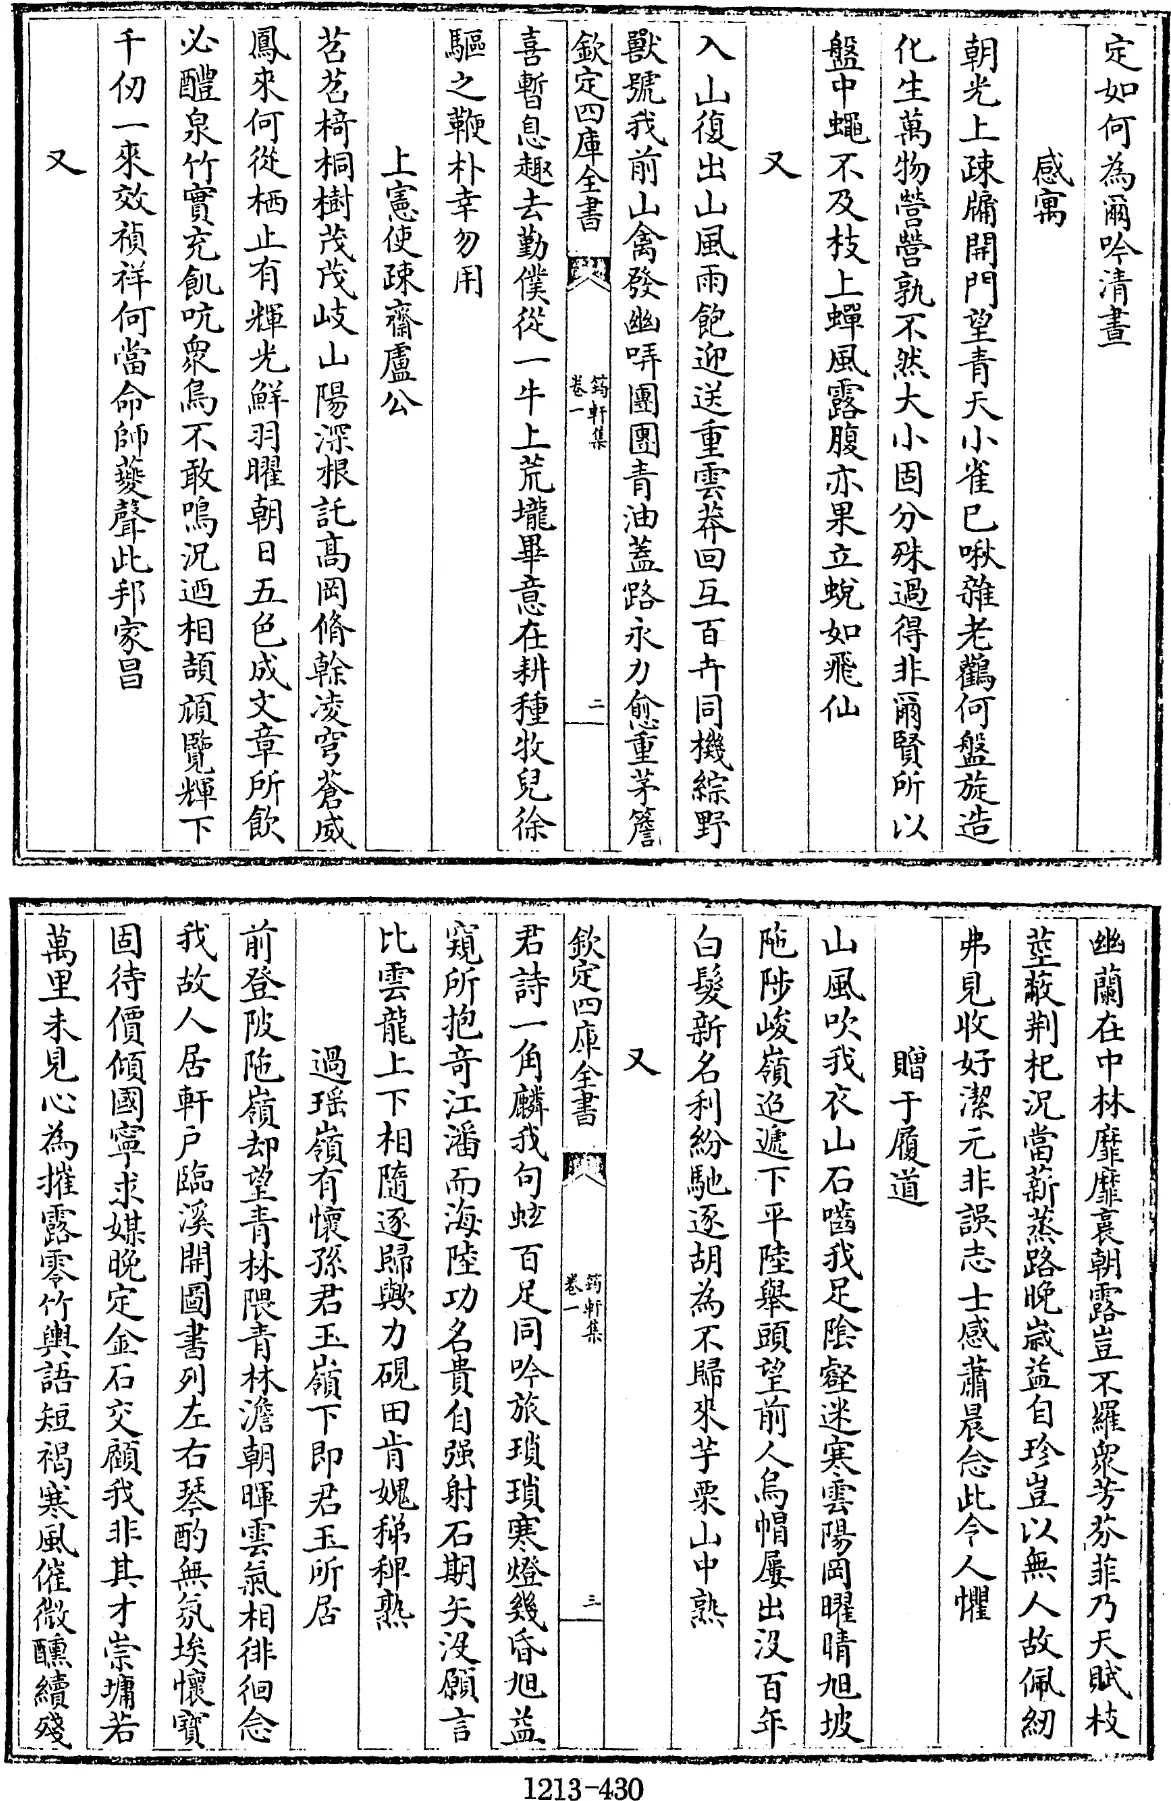 定如何為爾吟清晝
感寓
朝光上疎牖開門望青天小雀已啾雜老鸛何盤旋造
化生萬物營營孰不然大小固分殊過得非爾賢所以
盤中蠅不及枝上蟬風露腹亦果立蛻如飛仙
又
入山復出山風雨飽迎送重雲莽回互百卉同機綜野
獸號我前山禽發幽哢團團青油蓋路永力愈重茅簷
欽定四庫全書
筠軒集
卷一
二
喜暫息趣去勤僕從一牛上荒壠畢意在耕種牧兒徐
驅之鞭朴幸勿用
上憲使疎齋盧公
苕苕椅桐樹茂茂岐山陽深根託高岡脩榦凌穹蒼威
鳳來何從栖止有輝光鮮羽曜朝日五色成文章所飲
必醴泉竹實充飢吭衆鳥不敢鳴況迺相頡頏覽輝下
千仞一來效禎祥何當命師夔聲此邦家昌
又
幽蘭在中林靡靡裛朝露豈不羅衆芳芬菲乃天賦枝
莖蔽荆杞況當薪蒸路晚嵗益自珍豈以無人故佩紉
弗見收好潔元非誤志士感蕭晨念此令人懼
贈于履道
山風吹我衣山石嚙我足陰壑迷寒雲陽岡曜晴旭坡
陁陟峻嶺迢遞下平陸舉頭望前人烏帽屢出沒百年
白髮新名利紛馳逐胡為不歸來芋栗山中熟
又
欽定四庫全書
筠軒集
卷一
三
君詩一角麟我句蚿百足同吟旅瑣瑣寒燈幾昏旭益
窺所抱奇江濤而海陸功名貴自强射石期矢没願言
比雲龍上下相隨逐歸歟力硯田肯媿稊稗熟
過瑤嶺有懷孫君玉嶺下即君玉所居
前登陂陁嶺却望青林隈青林澹朝暉雲氣相徘徊念
我故人居軒户臨溪開圖書列左右琴酌無氛埃懷寶
固待價傾國寧求媒晚定金石交顧我非其才崇墉若
萬里未見心為摧露零竹輿語短褐寒風催微醺續殘
1213-430